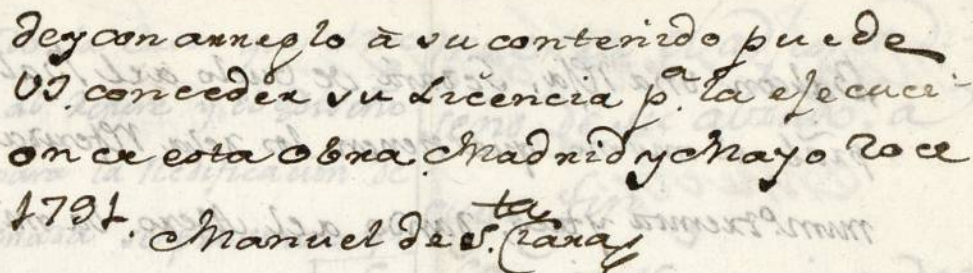 de y con arreglo à su contenido puede
VS. conceder su Licencia p.ª la ejecuci-
on de esta Obra. Madrid y Mayo 20 de
1791.
Manuel de S.ta Clara